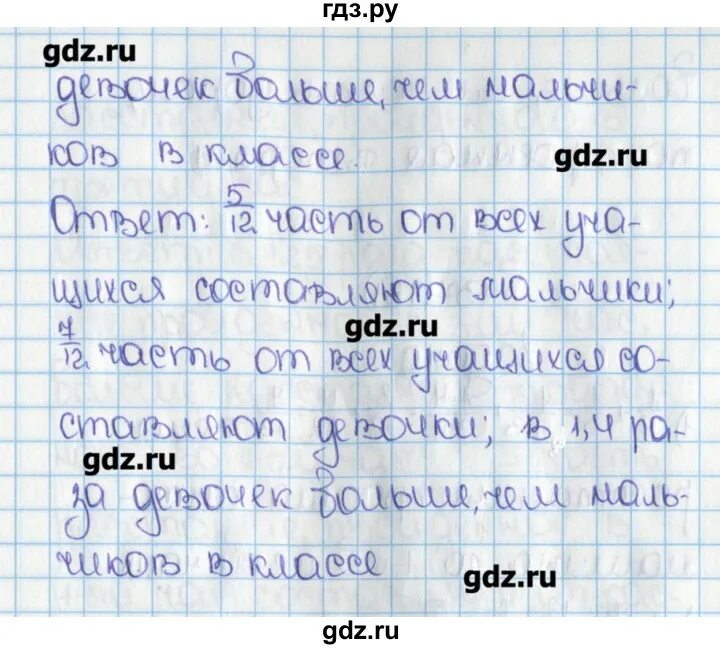 гдз.ру
gdz.ru
девочек больше, чем мальчи-
ков в классе.
gdz.ru
Ответ: 5/12 часть от всех уча-
щихся составляют мальчики;
gdz.ru
7/12 часть от всех учащихся со-
ставляют девочки; в 1,4 ра-
gdz.ru
за девочек больше, чем маль-
чиков в классе
gdz.ru
gdz.ru